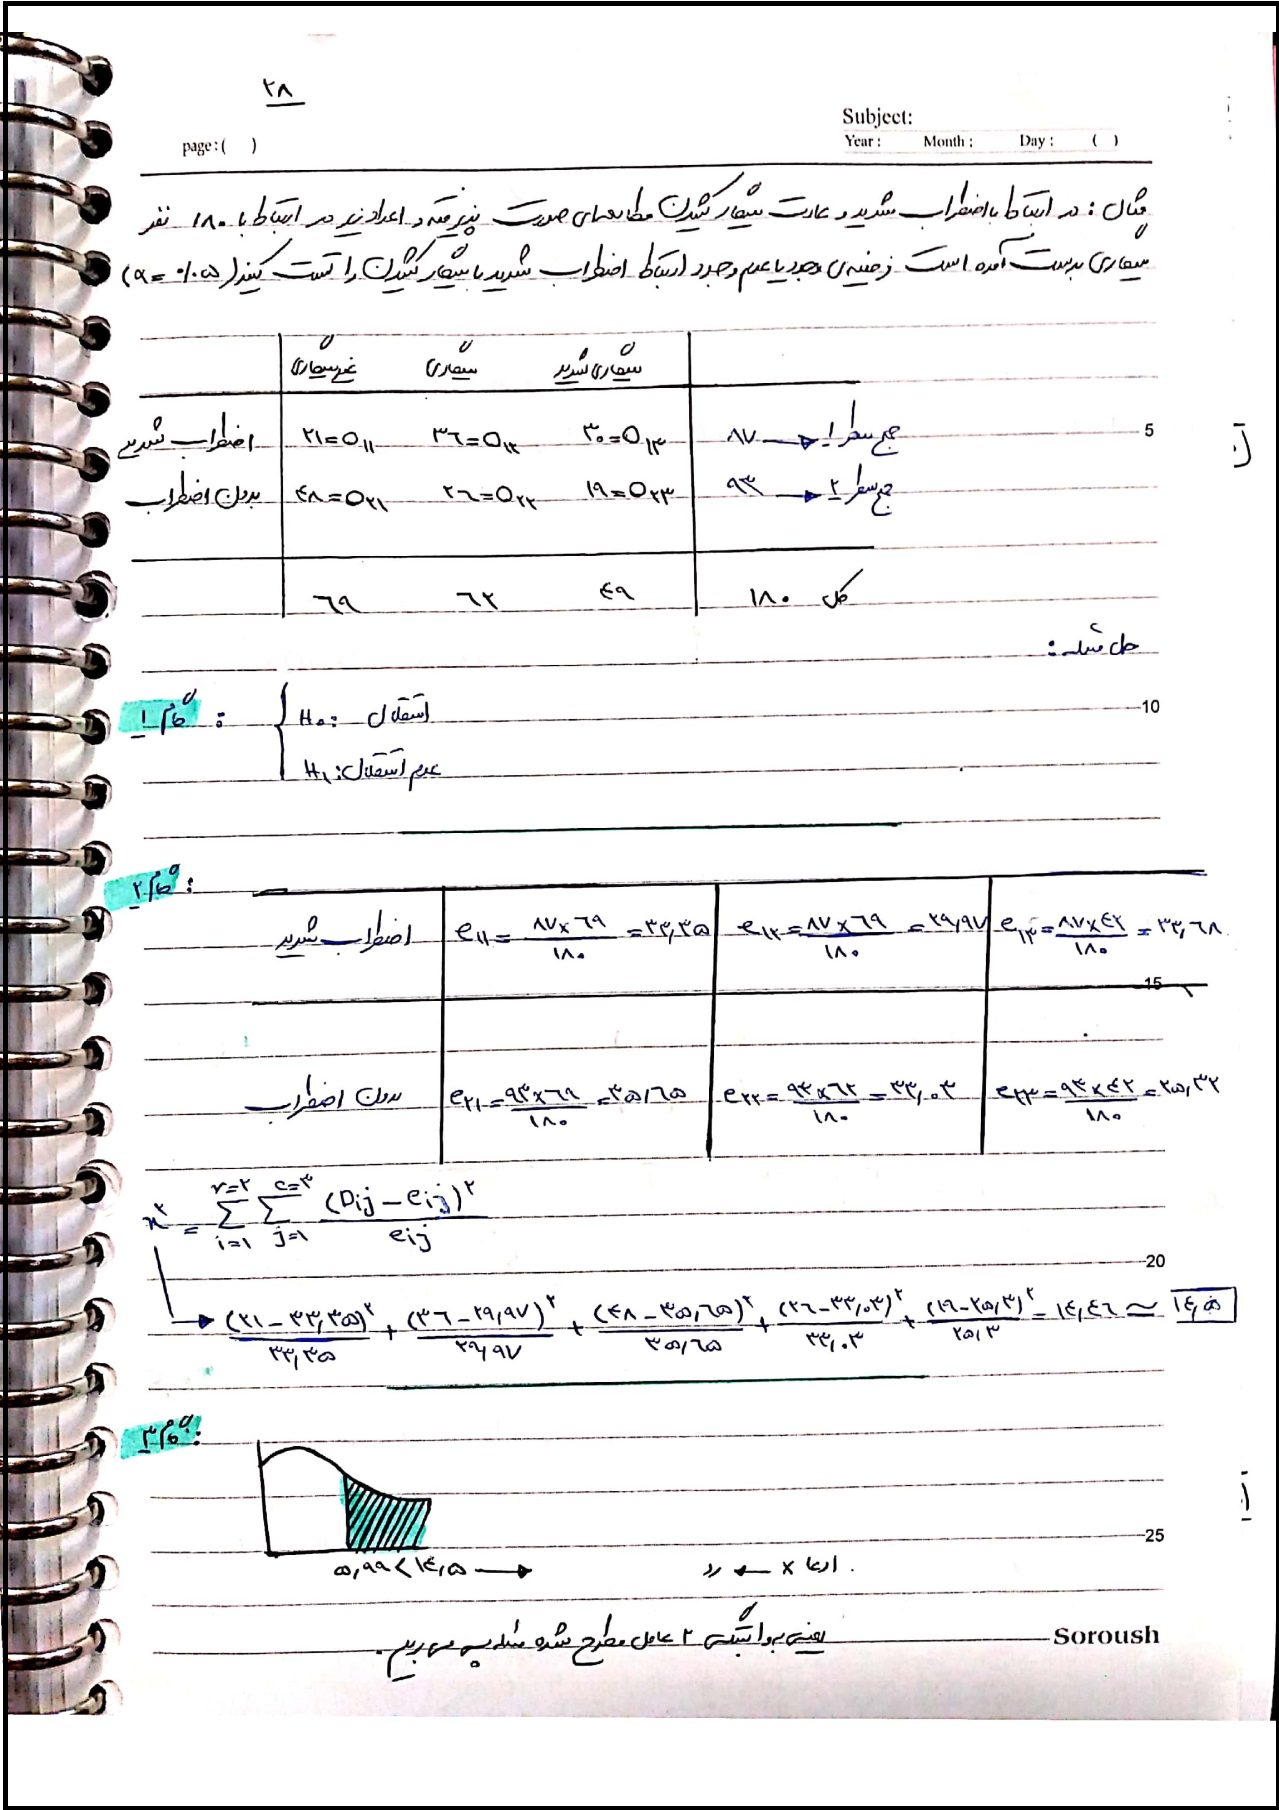 ۲۸
Subject:
page: ( )
Year : Month : Day : ( )
مثال : در ارتباط با اضطراب شدید و عادت سیگار کشیدن مطالعه‌ای صورت پذیرفته و اعداد زیر در ارتباط با ۱۸۰ نفر
سیگاری بدست آمده است فرضیه‌ی وجود یا عدم وجود ارتباط اضطراب شدید با سیگار کشیدن را تست کنید (α = %۵)
غیرسیگاری سیگاری سیگاری شدید
اضطراب شدید ۲۱=O۱۱ ۳۶=O۱۲ ۳۰=O۱۳ ۸۷ → جمع سطر ۱
5
بدون اضطراب ۴۸=O۲۱ ۲۶=O۲۲ ۱۹=O۲۳ ۹۳ → جمع سطر ۲
۶۹ ۶۲ ۴۹ ۱۸۰ کل
حل مسئله :
گام ۱ : H۰: استقلال
10
H۱: عدم استقلال
گام ۲ :
اضطراب شدید e۱۱ = ۸۷×۶۹/۱۸۰ = ۳۳,۳۵ e۱۲ = ۸۷×۶۹/۱۸۰ = ۲۹,۹۷ e۱۳ = ۸۷×۴۲/۱۸۰ = ۲۳,۶۸
15
بدون اضطراب e۲۱ = ۹۳×۶۹/۱۸۰ = ۳۵,۶۵ e۲۲ = ۹۳×۶۲/۱۸۰ = ۳۲,۰۳ e۲۳ = ۹۳×۴۲/۱۸۰ = ۲۵,۳۲
x² = Σ(i=۱, r=۲) Σ(j=۱, c=۳) (Oij − eij)²/eij
20
(۲۱−۳۳,۳۵)²/۳۳,۳۵ + (۳۶−۲۹,۹۷)²/۲۹,۹۷ + (۴۸−۳۵,۶۵)²/۳۵,۶۵ + (۲۶−۳۲,۰۳)²/۳۲,۰۳ + (۱۹−۲۵,۳)²/۲۵,۳ = ۱۴,۴۶ ≃ ۱۴,۵
گام ۳ :
25
۵,۹۹ < ۱۴,۵ → رد ← x ادعا .
یعنی به وابستگی ۲ عامل مطرح شده مسئله پی می بریم .
Soroush